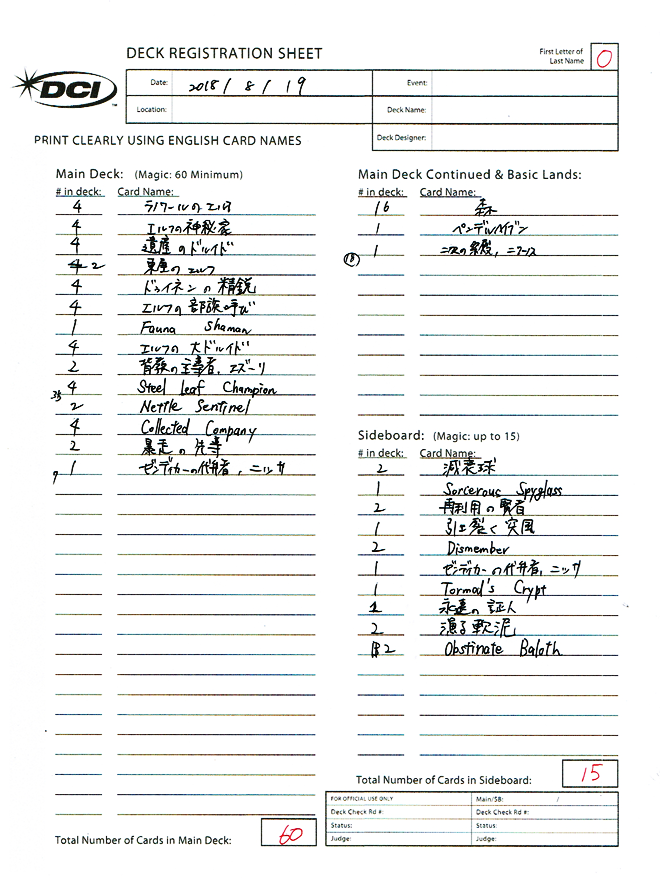 DECK REGISTRATION SHEET
First Letter of
Last Name
O
DCI
Date: 2018/8/19
Event:
Location:
Deck Name:
Deck Designer:
PRINT CLEARLY USING ENGLISH CARD NAMES
Main Deck: (Magic: 60 Minimum)
# in deck: Card Name:
4 ラノワールのエルフ
4 エルフの神秘家
4 遺産のドルイド
2 東屋のエルフ
4 ドゥイネンの精鋭
4 エルフの部族呼び
1 Fauna Shaman
4 エルフの大ドルイド
2 背教の主導者、エズーリ
4 Steel Leaf Champion
2 Nettle Sentinel
4 Collected Company
2 暴走の先導
1 ゼンディカーの代弁者、ニッサ
Main Deck Continued & Basic Lands:
# in deck: Card Name:
16 森
1 ペンデルヘイヴン
1 ニクスの祭殿、ニクソス
18
Sideboard: (Magic: up to 15)
# in deck: Card Name:
2 減衰球
1 Sorcerous Spyglass
2 再利用の賢者
1 引き裂く突風
2 Dismember
1 ゼンディカーの代弁者、ニッサ
1 Tormod's Crypt
1 永遠の証人
2 漁る軟泥
2 Obstinate Baloth
Total Number of Cards in Sideboard: 15
FOR OFFICIAL USE ONLY
Main/SB: /
Deck Check Rd #:
Deck Check Rd #:
Status:
Status:
Judge:
Judge:
Total Number of Cards in Main Deck: 60